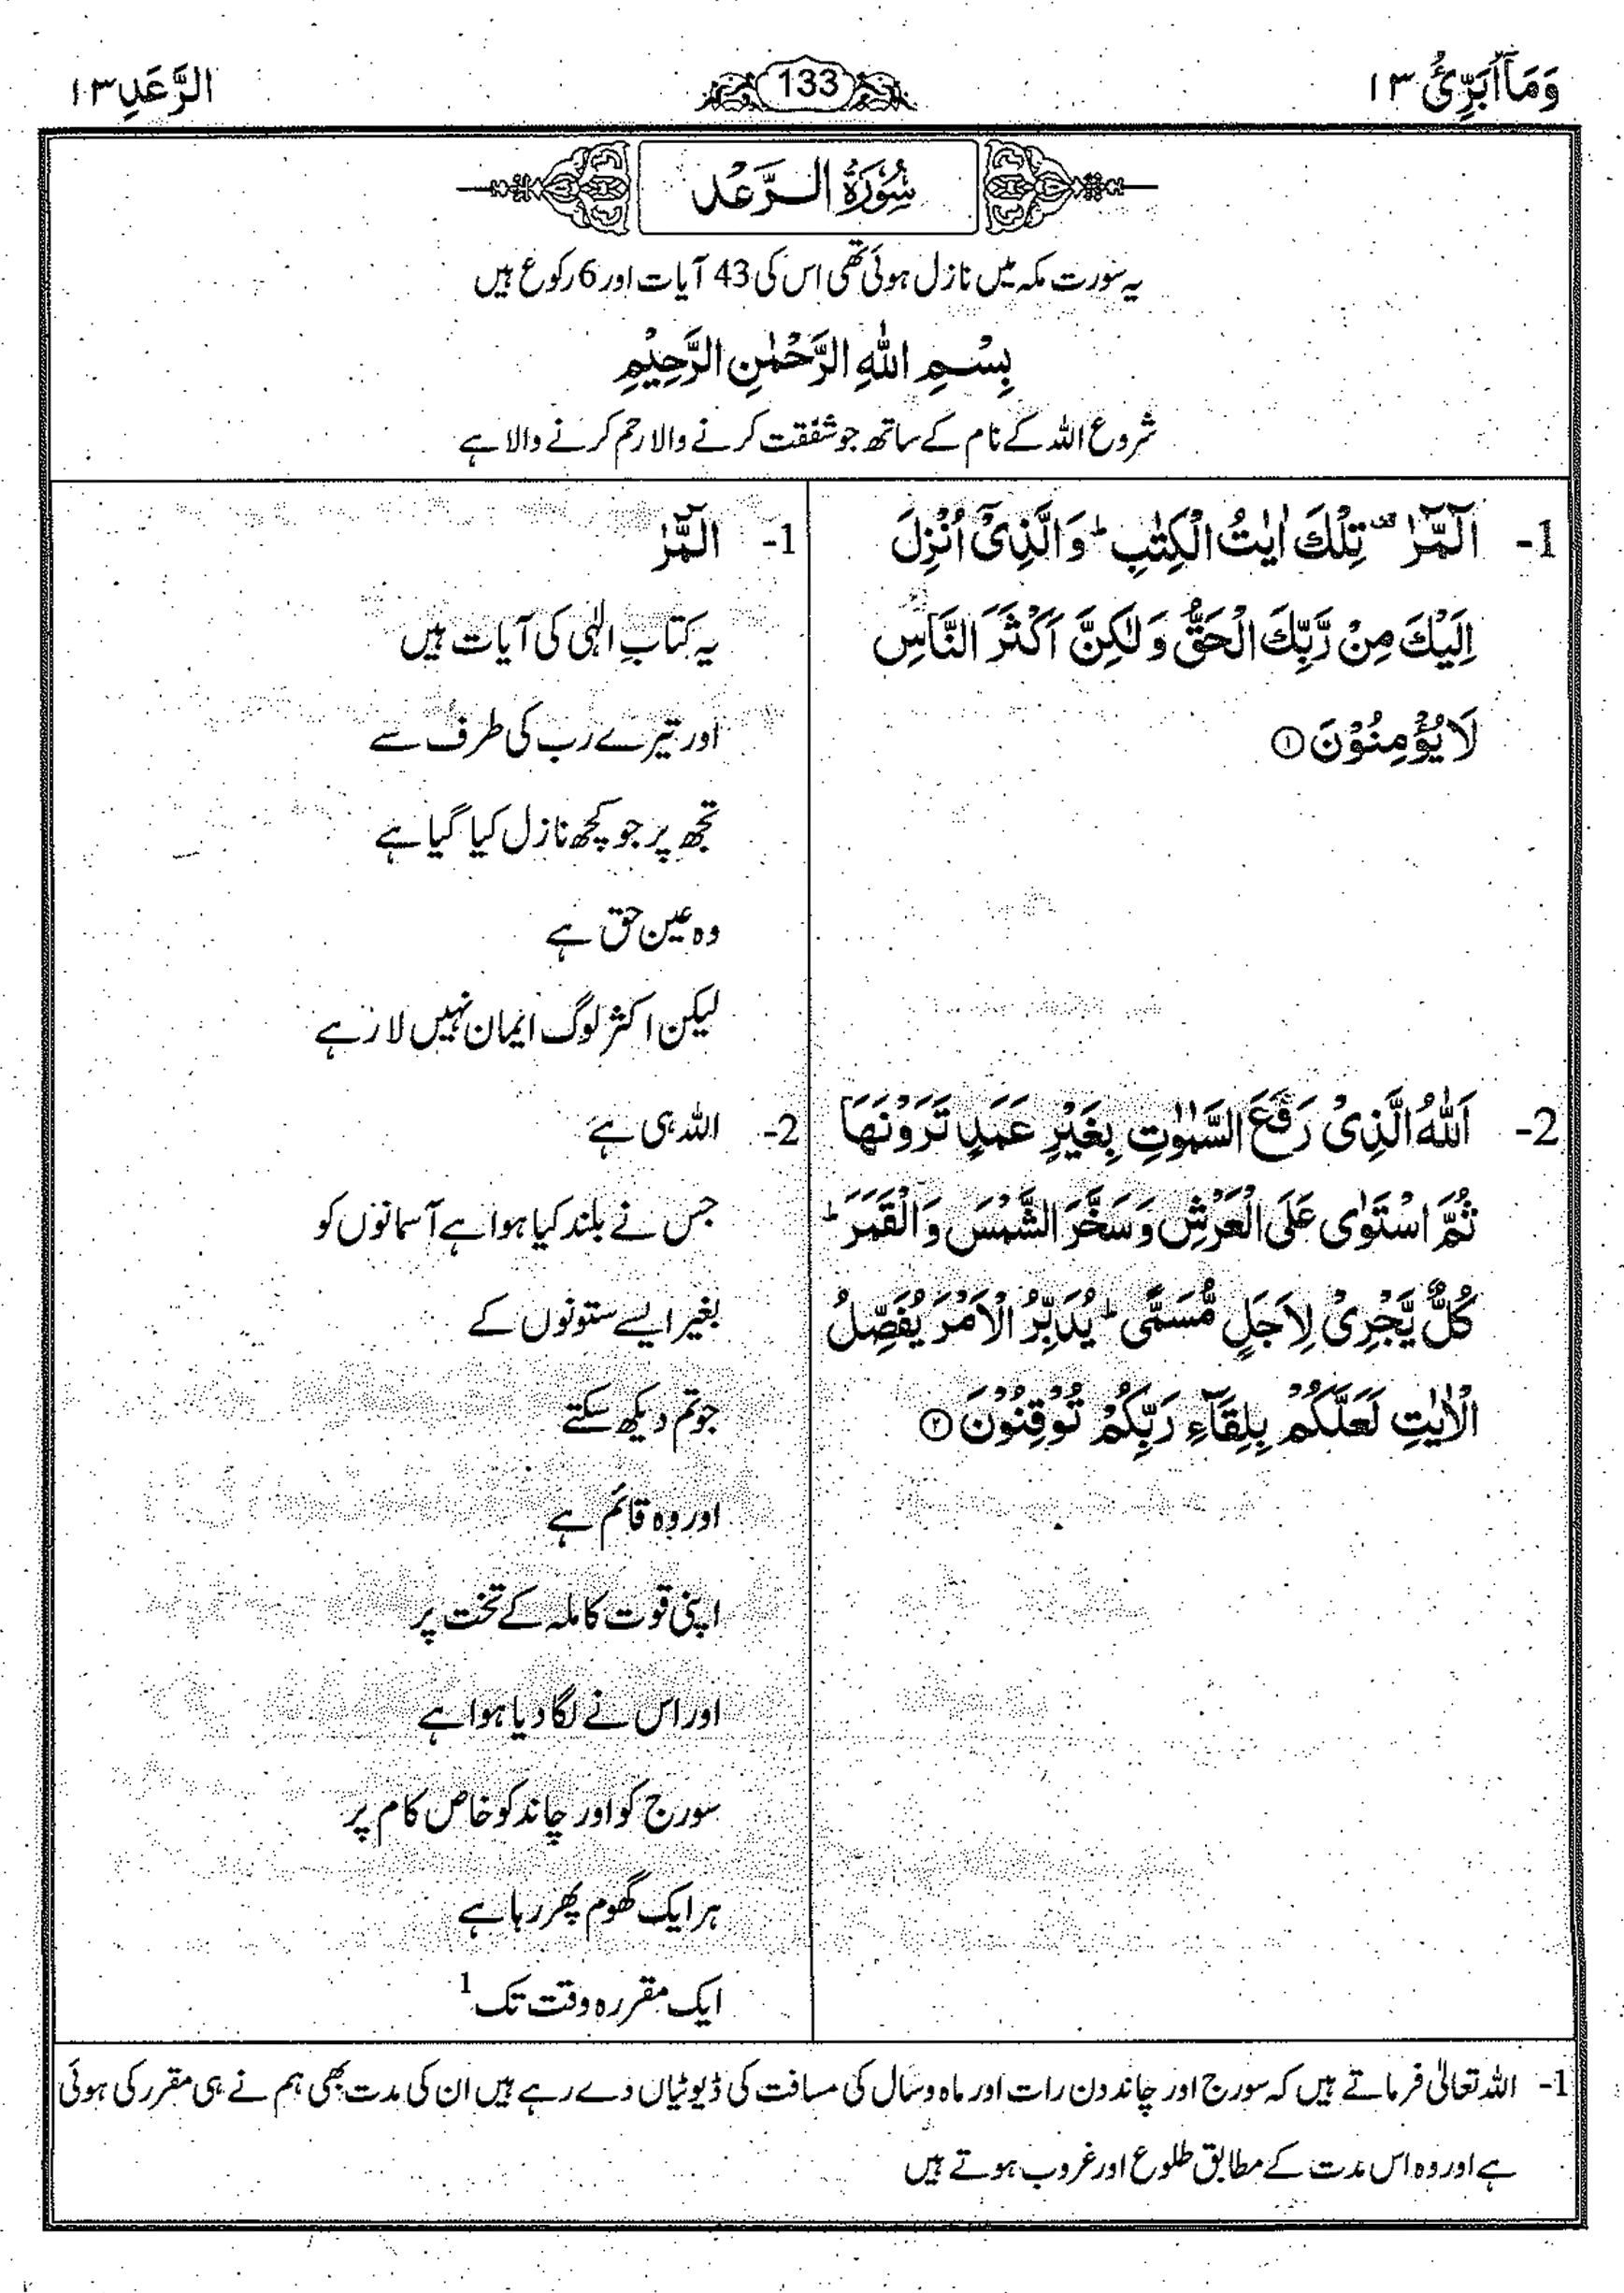 وَمَآ اُبَرِّئُ ١٣
133
الرَّعَدِ ١٣
سُوْرَةُ الرَّعْدِ
یہ سورت مکہ میں نازل ہوئی تھی اس کی 43 آیات اور 6 رکوع ہیں
بِسْمِ اللّٰهِ الرَّحْمٰنِ الرَّحِيْمِ
شروع اللہ کے نام کے ساتھ جو شفقت کرنے والا رحم کرنے والا ہے
1- الٓمّٓرٰ ۟ تِلْكَ اٰيٰتُ الْكِتٰبِ ؕ وَالَّذِيْۤ اُنْزِلَ
اِلَيْكَ مِنْ رَّبِّكَ الْحَقُّ وَلٰكِنَّ اَكْثَرَ النَّاسِ
لَا يُؤْمِنُوْنَ ①
1- الٓمّٓرٰ
یہ کتابِ الٰہی کی آیات ہیں
اور تیرے رب کی طرف سے
تجھ پر جو کچھ نازل کیا گیا ہے
وہ عین حق ہے
لیکن اکثر لوگ ایمان نہیں لا رہے
2- اَللّٰهُ الَّذِيْ رَفَعَ السَّمٰوٰتِ بِغَيْرِ عَمَدٍ تَرَوْنَهَا
ثُمَّ اسْتَوٰى عَلَى الْعَرْشِ وَسَخَّرَ الشَّمْسَ وَالْقَمَرَ ؕ
كُلٌّ يَّجْرِيْ لِاَجَلٍ مُّسَمًّى ؕ يُدَبِّرُ الْاَمْرَ يُفَصِّلُ
الْاٰيٰتِ لَعَلَّكُمْ بِلِقَآءِ رَبِّكُمْ تُوْقِنُوْنَ ②
2- اللہ ہی ہے
جس نے بلند کیا ہوا ہے آسمانوں کو
بغیر ایسے ستونوں کے
جو تم دیکھ سکتے
اور وہ قائم ہے
اپنی قوت کاملہ کے تخت پر
اور اس نے لگا دیا ہوا ہے
سورج کو اور چاند کو خاص کام پر
ہر ایک گھوم پھر رہا ہے
ایک مقررہ وقت تک 1
1- اللہ تعالٰی فرماتے ہیں کہ سورج اور چاند دن رات اور ماہ و سال کی مسافت کی ڈیوٹیاں دے رہے ہیں ان کی مدت بھی ہم نے ہی مقرر کی ہوئی
ہے اور وہ اس مدت کے مطابق طلوع اور غروب ہوتے ہیں